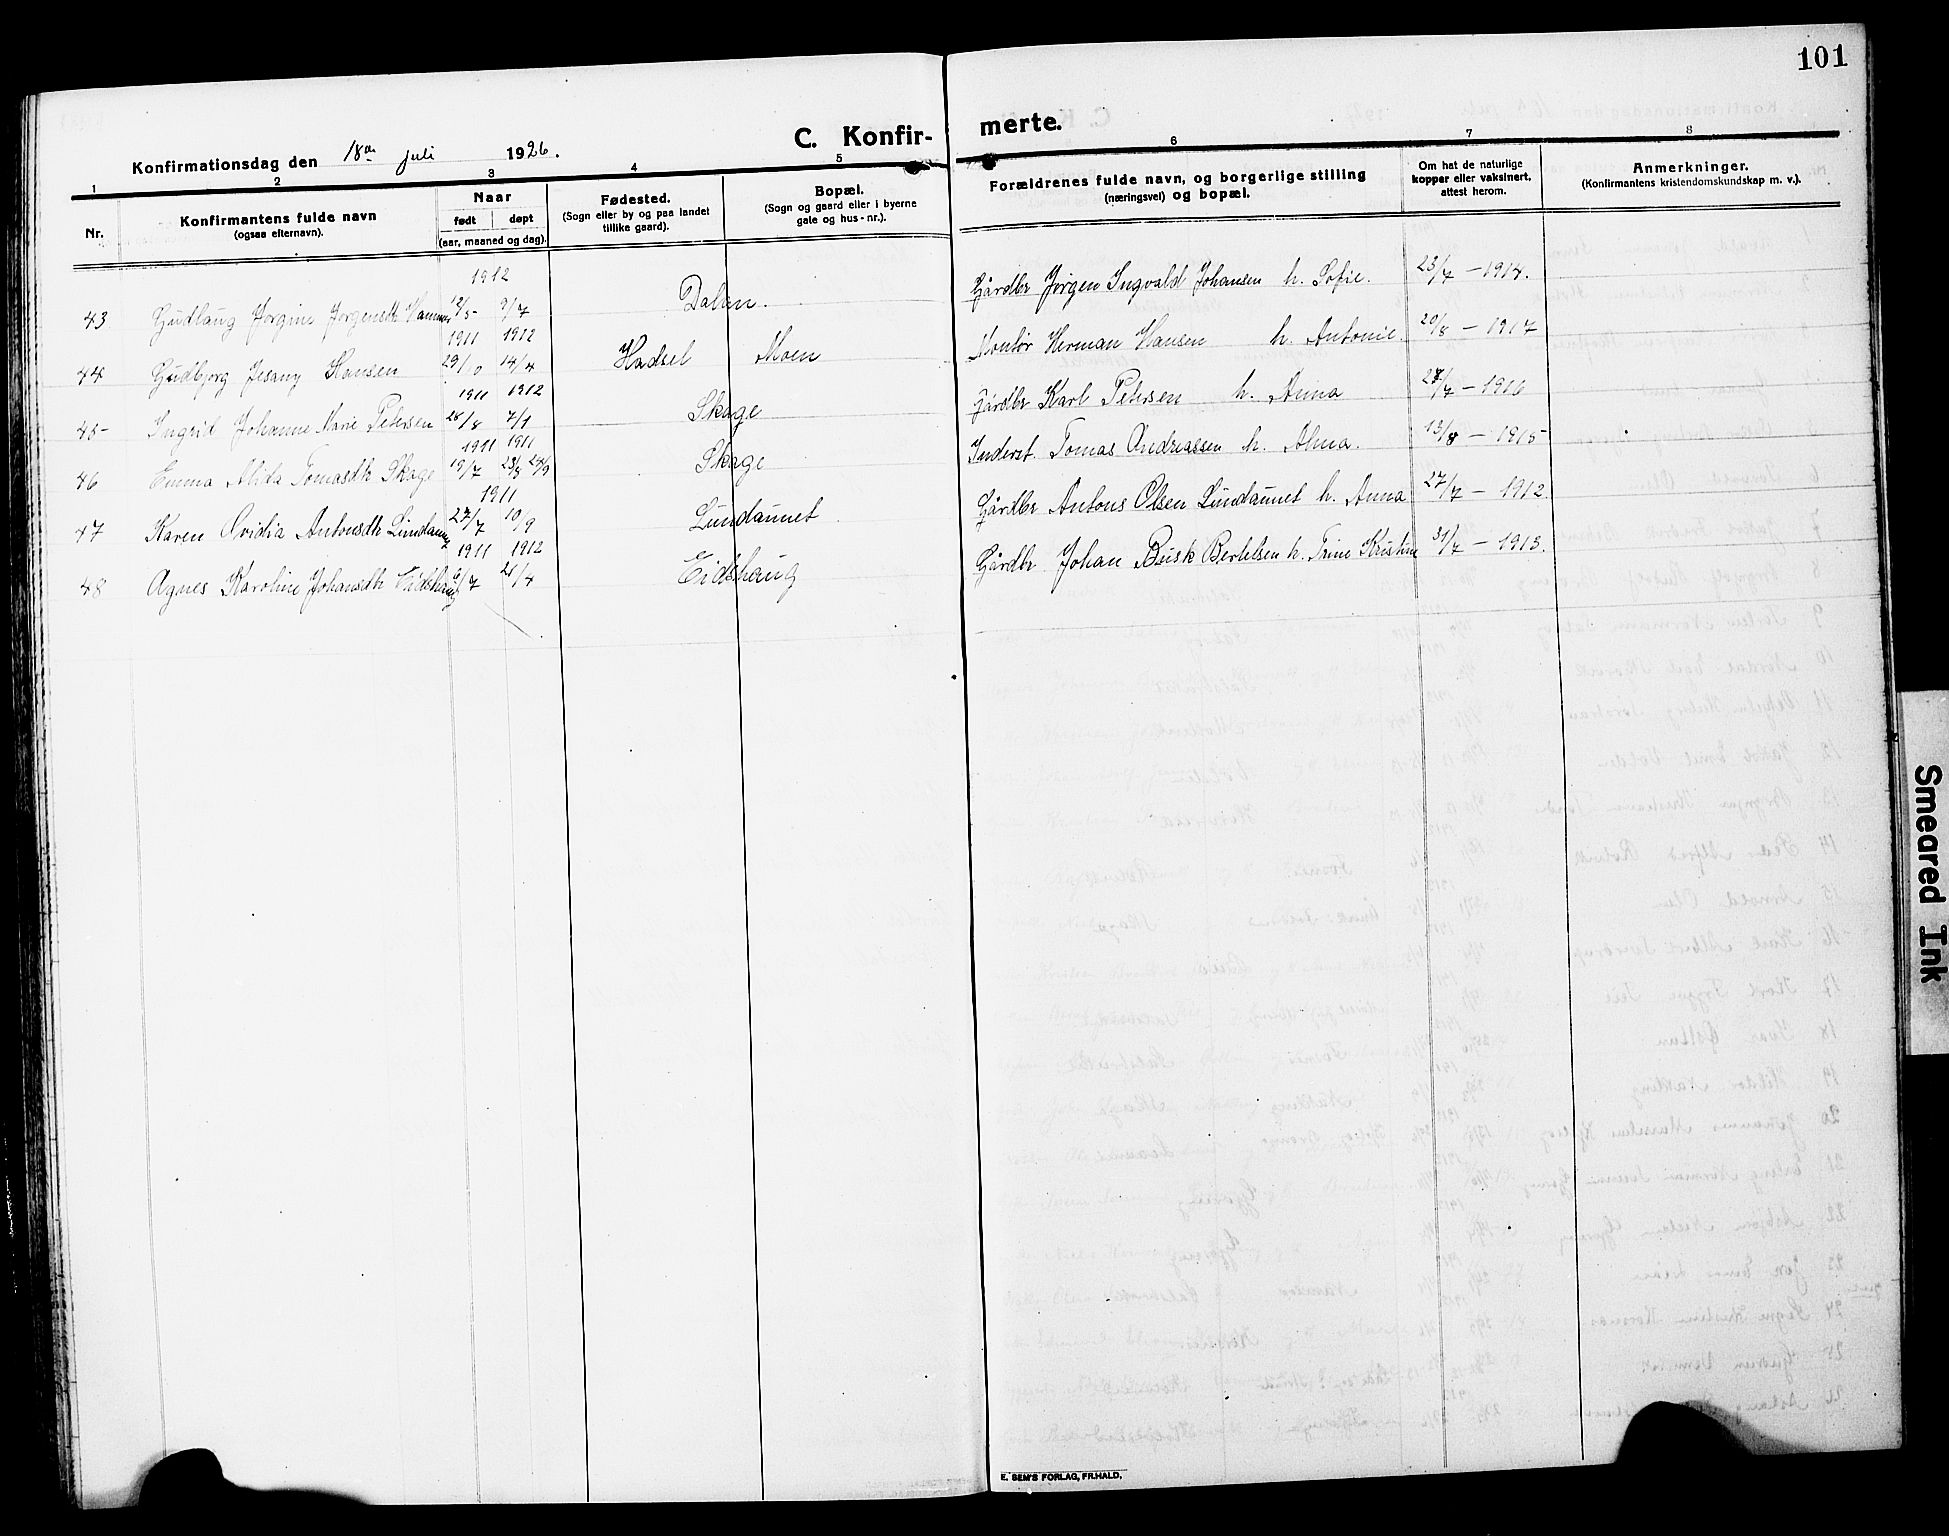 101
C. Konfir- merte.
Konfirmationsdag den 18de juli 1926.
1 2 3 4 5 6 7 8
Nr.
Konfirmantens fulde navn
(ogsaa efternavn).
Naar
født døpt
(aar, maaned og dag).
Fødested.
(Sogn eller by og paa landet
tillike gaard).
Bopæl.
(Sogn og gaard eller i byerne
gate og hus-nr.).
Forældrenes fulde navn, og borgerlige stilling
(næringsvei) og bopæl.
Om hat de naturlige
kopper eller vaksinert,
attest herom.
Anmerkninger.
(Konfirmantens kristendomskundskap m. v.).
1912
43 Gudlaug Jørgine Jørgensdtr. 12/5 9/7 Dalen. Gårdbr Jørgen Ingvald Johansen h. Sofie. 23/7 - 1914.
1911 1912
44 Gudbjørg Jesany Hansen 29/10 14/4 Hadsel Moen Montør Herman Hansen h. Antonie. 20/8 - 1917
1911 1912
45 Ingrid Johanne Marie Petersen 28/8 7/1 Skage Gårdbr Karl Petersen h. Anna 28/7 - 1916
1911 1911
46 Emma Alida Tomasdtr Skage 19/7 23/8 24/9 Skage Inderst. Tomas Andreassen h. Alma. 13/8 - 1915
1911
47 Karen Ovidia Antonsdtr Lindaunet 27/7 10/9 Lundaunet Gårdbr Antons Olsen Lundaunet h. Anna 27/7 - 1912.
1911 1912
48 Agnes Karoline Johansdtr Eidshaug 6/7 21/4 Eidshaug Gårdbr Johan Busk Bertelsen h. Trine Kristine 31/7 - 1913.
E. SEM'S FORLAG, FR.HALD.
Smeared Ink